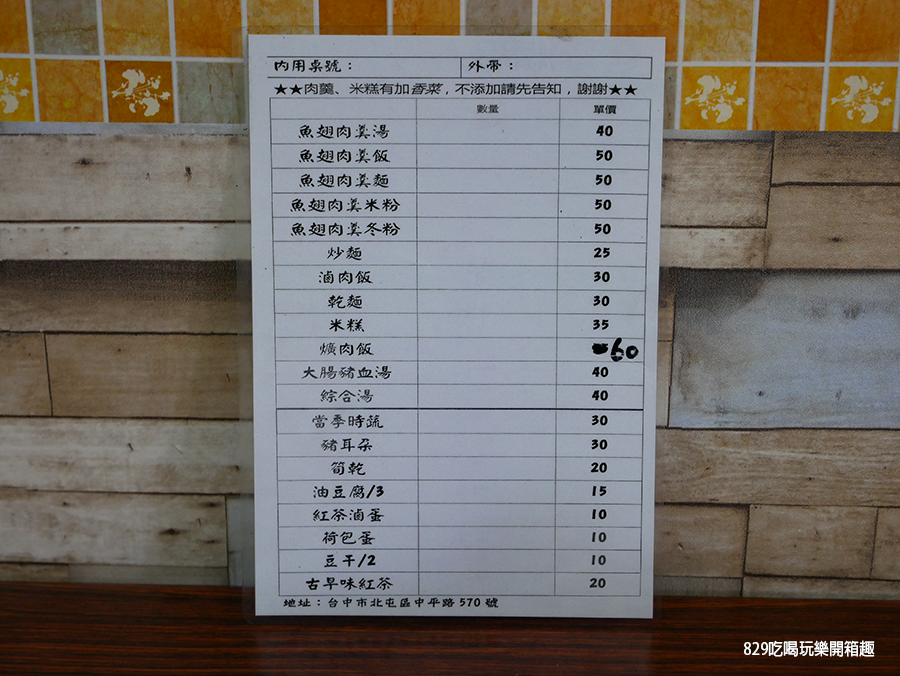 內用桌號： 外帶：
★★肉羹、米糕有加香菜，不添加請先告知，謝謝★★
數量 單價
魚翅肉羹湯 40
魚翅肉羹飯 50
魚翅肉羹麵 50
魚翅肉羹米粉 50
魚翅肉羹冬粉 50
炒麵 25
滷肉飯 30
乾麵 30
米糕 35
爌肉飯 60
大腸豬血湯 40
綜合湯 40
當季時蔬 30
豬耳朵 30
筍乾 20
油豆腐/3 15
紅茶滷蛋 10
荷包蛋 10
豆干/2 10
古早味紅茶 20
地址：台中市北屯區中平路 570 號
829吃喝玩樂開箱趣